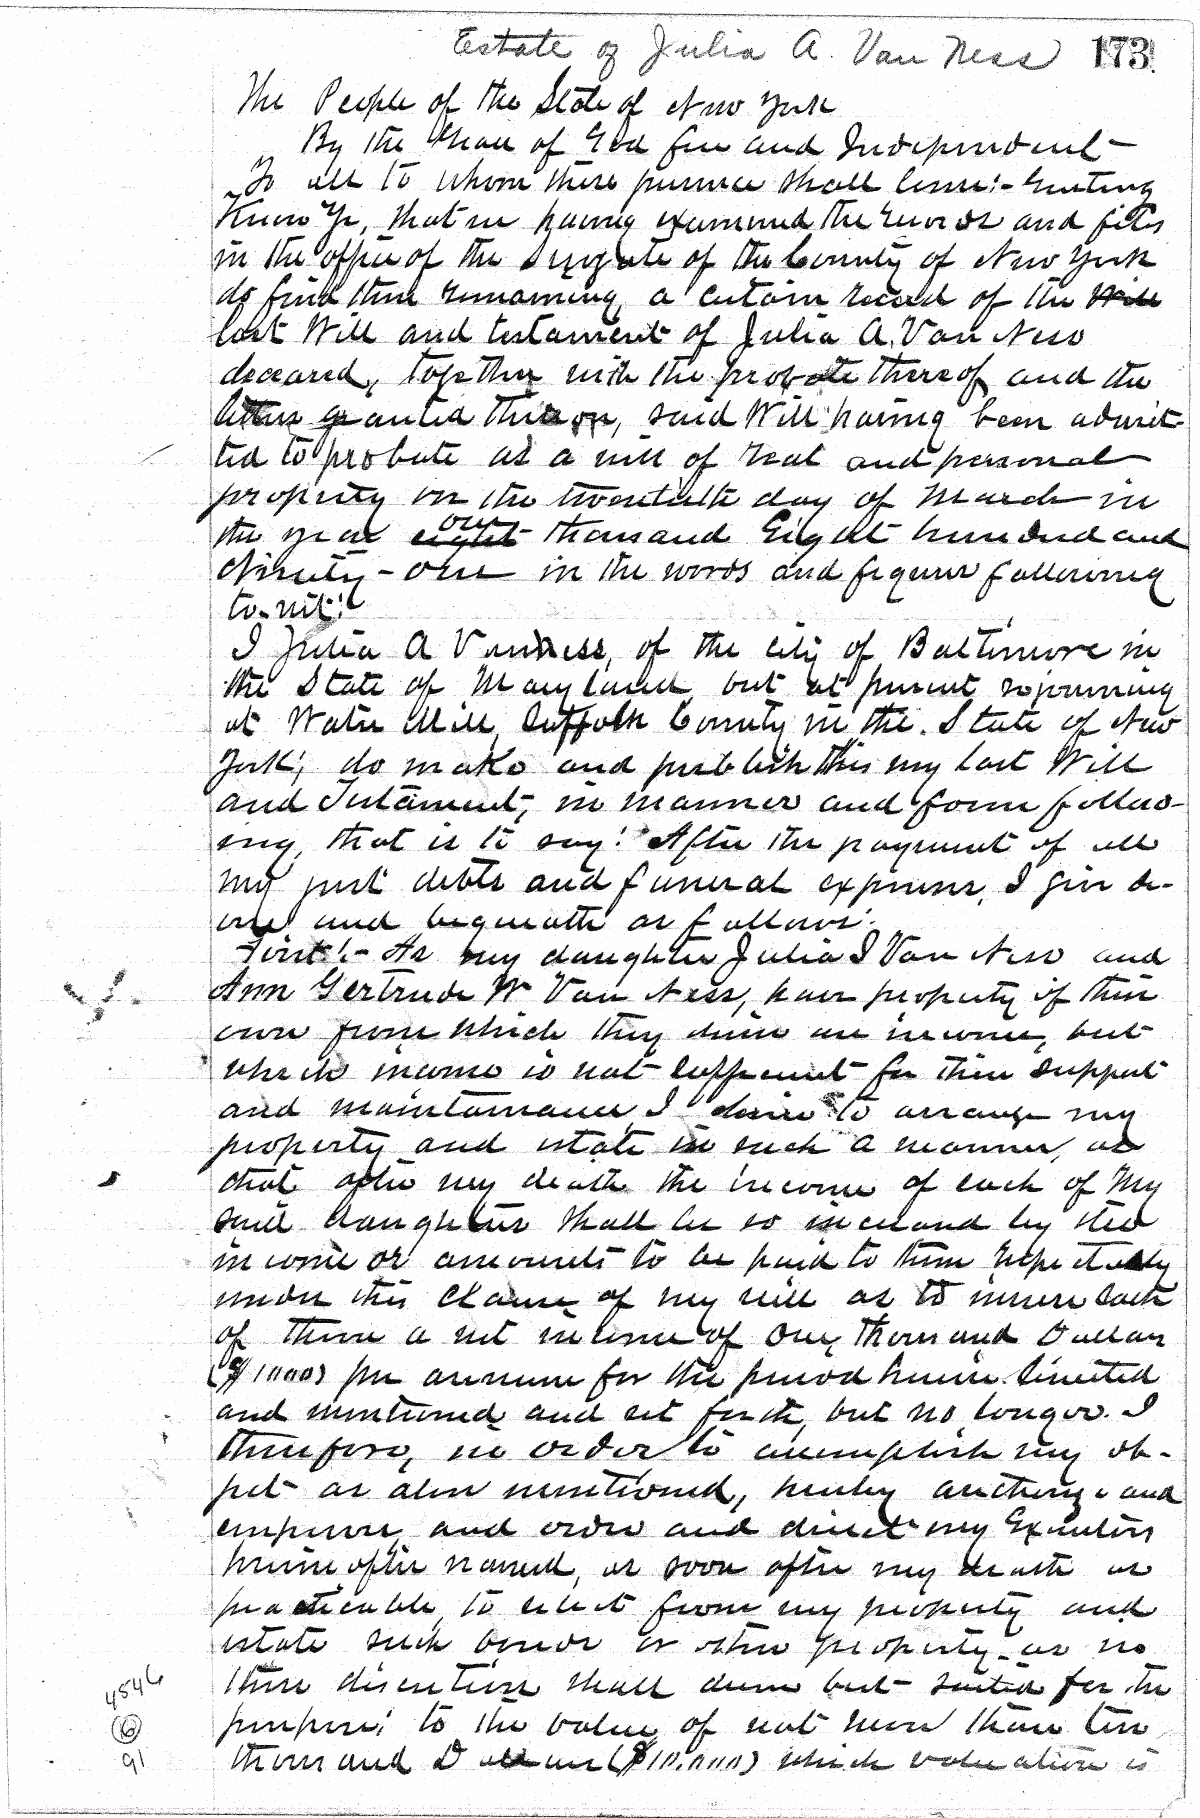 Estate of Julia A. Van Ness 173
The People of the State of New York
By the Grace of God free and Independent-
To all to whom these presence shall come:- Greeting
Know Ye, that we having examined the records and files
in the office of the Surrogate of the County of New York
do find there remaining, a certain record of the Will
last Will and testament of Julia A. Van Ness
deceased, together with the probate thereof and the
letters granted thereon, said Will having been admit-
ted to probate as a will of real and personal
property on the twentieth day of March in
the year eight one thousand Eight hundred and
Ninety-one in the words and figures following
to-wit:
I Julia A Van Ness, of the city of Baltimore in
the State of Maryland, but at present sojourning
at Water Mill, Suffolk County in the State of New
York, do make and publish this my last Will
and Testament, in manner and form follow-
ing, that is to say: After the payment of all
my just debts and funeral expenses, I give de-
vise and bequeath as follows:
First:- As my daughters Julia I Van Ness and
Ann Gertrude W Van Ness, have property of their
own from which they derive an income, but
which income is not sufficient for their support
and maintainance, I desire to arrange my
property and estate in such a manner, as
that after my death the income of each of my
said daughters shall be so increased by the
income or amounts to be paid to them respectively
under this clause of my will as to insure each
of them a net income of One, thousand Dollars
($1000) per annum for the period herein limited
and mentioned and set forth, but no longer. I
therefore, in order to accomplish my ob-
ject as above mentioned, hereby authorize and
empower, and order and direct my Executors
hereinafter named, as soon after my death as
practicable, to select from my property and
estate such bonds or other property as in
their discretion shall deem best suited for the
purpose, to the value of not more than ten
thousand Dollars ($10.000) which valuation is
4546
6
91